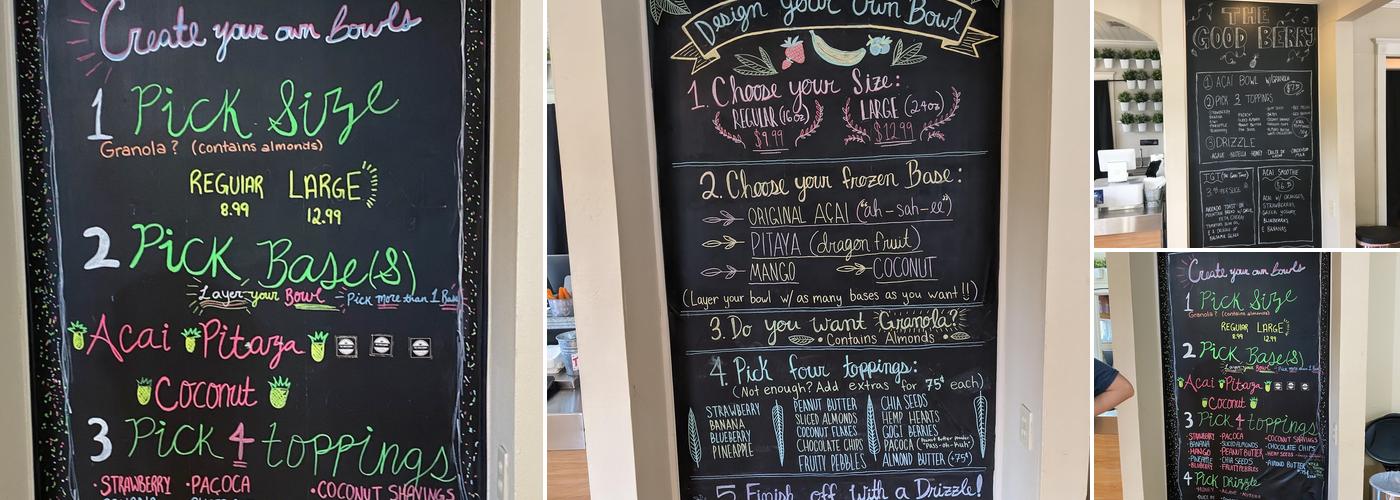 Create your own bowls
1 Pick Size
Granola? (contains almonds)
REGULAR LARGE
8.99 12.99
2 Pick Base(s)
Layer your Bowl - Pick more than 1 Base
Acai Pitaya
Coconut
3 Pick 4 toppings
· STRAWBERRY · PACOCA · COCONUT SHAVINGS
Design your own Bowl
1. Choose your Size:
REGULAR (16oz) LARGE (24oz)
$9.99 $12.99
2. Choose your frozen Base:
ORIGINAL ACAI ("ah-sah-ee")
PITAYA (dragon fruit)
MANGO COCONUT
(Layer your bowl w/ as many bases as you want!!)
3. Do you want Granola?
• Contains Almonds •
4. Pick four toppings:
(Not enough? Add extras for 75¢ each)
STRAWBERRY PEANUT BUTTER CHIA SEEDS
BANANA SLICED ALMONDS HEMP HEARTS
BLUEBERRY COCONUT FLAKES GOGI BERRIES
PINEAPPLE CHOCOLATE CHIPS PACOCA (Peanut Butter Powder "Pass-oh-kuh")
FRUITY PEBBLES ALMOND BUTTER (+75¢)
5 Finish off with a Drizzle!
THE
GOOD BERRY
1 ACAI BOWL W/GRANOLA
2 PICK 3 TOPPINGS
3 DRIZZLE
AGAVE · NUTELLA · HONEY
ACAI SMOOTHIE
ACAI W/ ORANGES,
STRAWBERRIES,
GREEK YOGURT,
BLUEBERRIES
& BANANAS
Create your own bowls
1 Pick Size
Granola? (contains almonds)
REGULAR LARGE
8.99 12.99
2 Pick Base(s)
Layer your Bowl - Pick more than 1 Base
Acai Pitaya
Coconut
3 Pick 4 toppings
· STRAWBERRY · PACOCA · COCONUT SHAVINGS
· BANANA · SLICED ALMONDS · CHOCOLATE CHIPS
· MANGO · PEANUT BUTTER · HEMP SEEDS
· PINEAPPLE · CHIA SEEDS · ALMOND BUTTER
· BLUEBERRY · FRUITY PEBBLES
4 Pick Drizzle